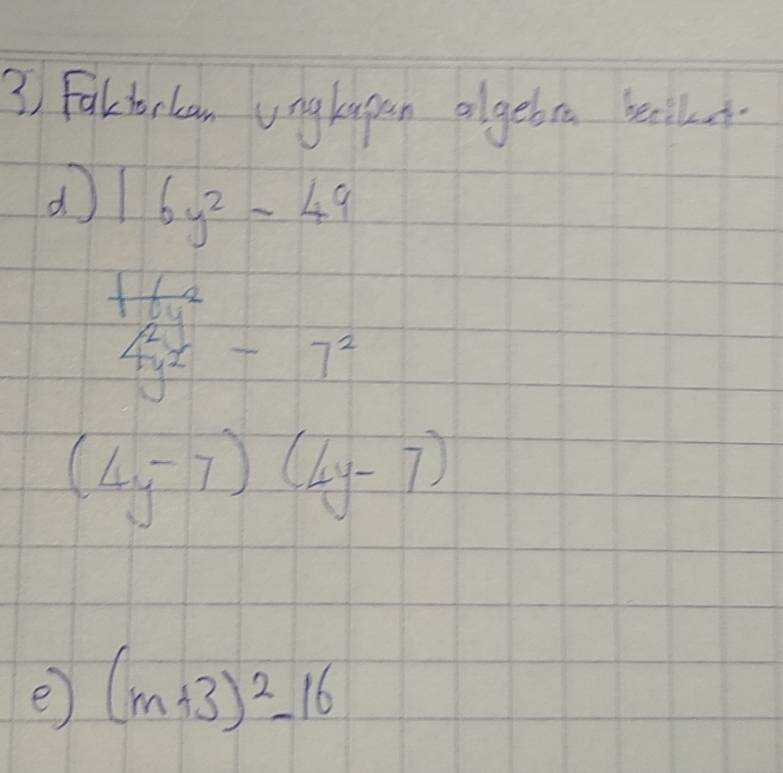 3) Faktorkan ungkapan algebra berikut.
d) 16y² - 49
16y²
4²y² - 7²
(4y - 7) (4y - 7)
e) (m+3)² - 16